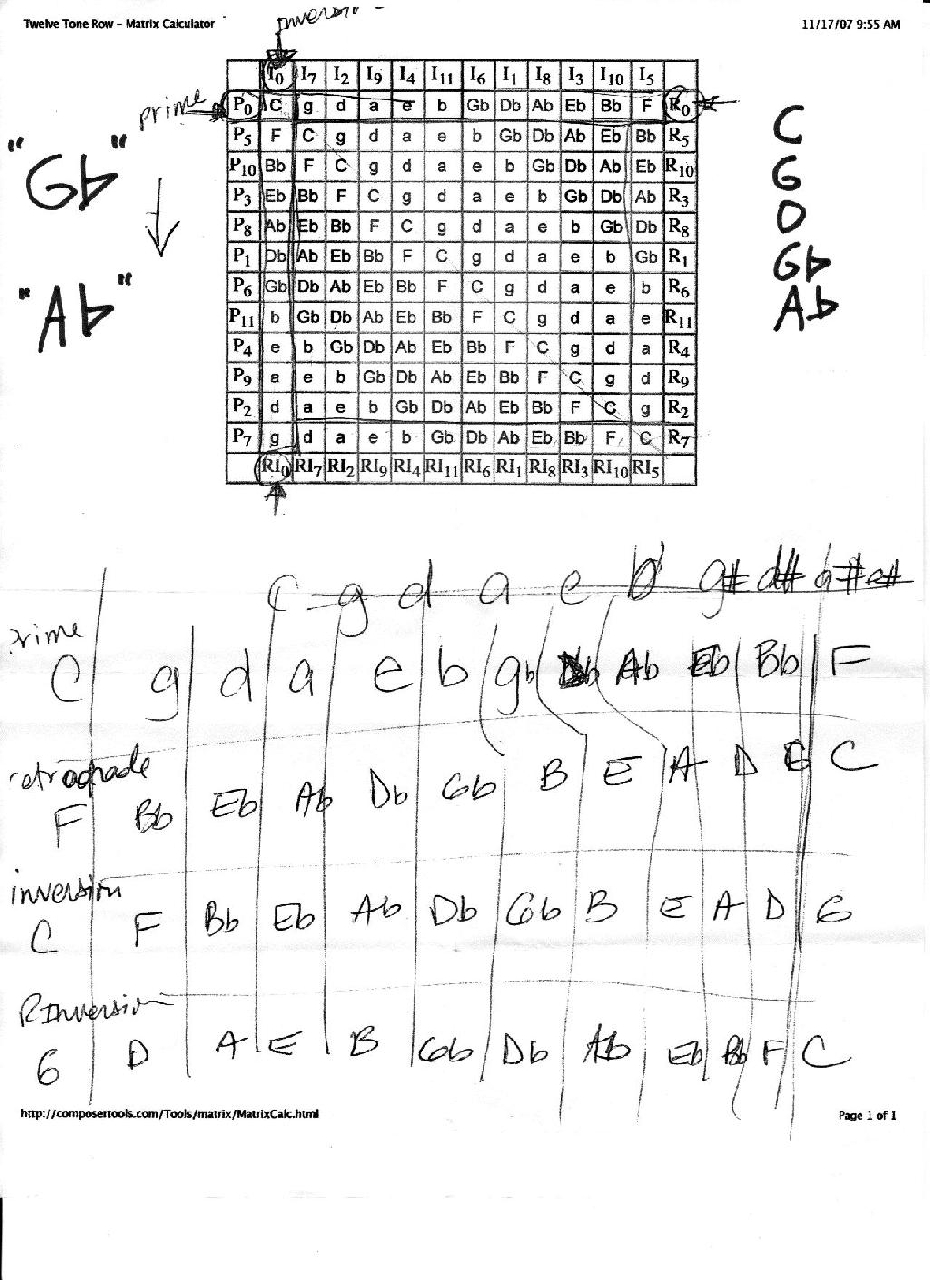 Twelve Tone Row - Matrix Calculator
11/17/07 9:55 AM
inversion
I0 I7 I2 I9 I4 I11 I6 I1 I8 I3 I10 I5
prime
P0 C g d a e b Gb Db Ab Eb Bb F R0
P5 F C g d a e b Gb Db Ab Eb Bb R5
P10 Bb F C g d a e b Gb Db Ab Eb R10
P3 Eb Bb F C g d a e b Gb Db Ab R3
P8 Ab Eb Bb F C g d a e b Gb Db R8
P1 Db Ab Eb Bb F C g d a e b Gb R1
P6 Gb Db Ab Eb Bb F C g d a e b R6
P11 b Gb Db Ab Eb Bb F C g d a e R11
P4 e b Gb Db Ab Eb Bb F C g d a R4
P9 a e b Gb Db Ab Eb Bb F C g d R9
P2 d a e b Gb Db Ab Eb Bb F C g R2
P7 g d a e b Gb Db Ab Eb Bb F C R7
RI0 RI7 RI2 RI9 RI4 RI11 RI6 RI1 RI8 RI3 RI10 RI5
"Gb"
"Ab"
C
G
D
Gb
Ab
c g d a e b g# d# a# e#
prime
C g d a e b gb Db Ab Eb Bb F
retrograde
F Bb Eb Ab Db Gb B E A D G C
inversion
C F Bb Eb Ab Db Gb B E A D G
RInversion
G D A E B Gb Db Ab Eb Bb F C
http://composertools.com/Tools/matrix/MatrixCalc.html
Page 1 of 1